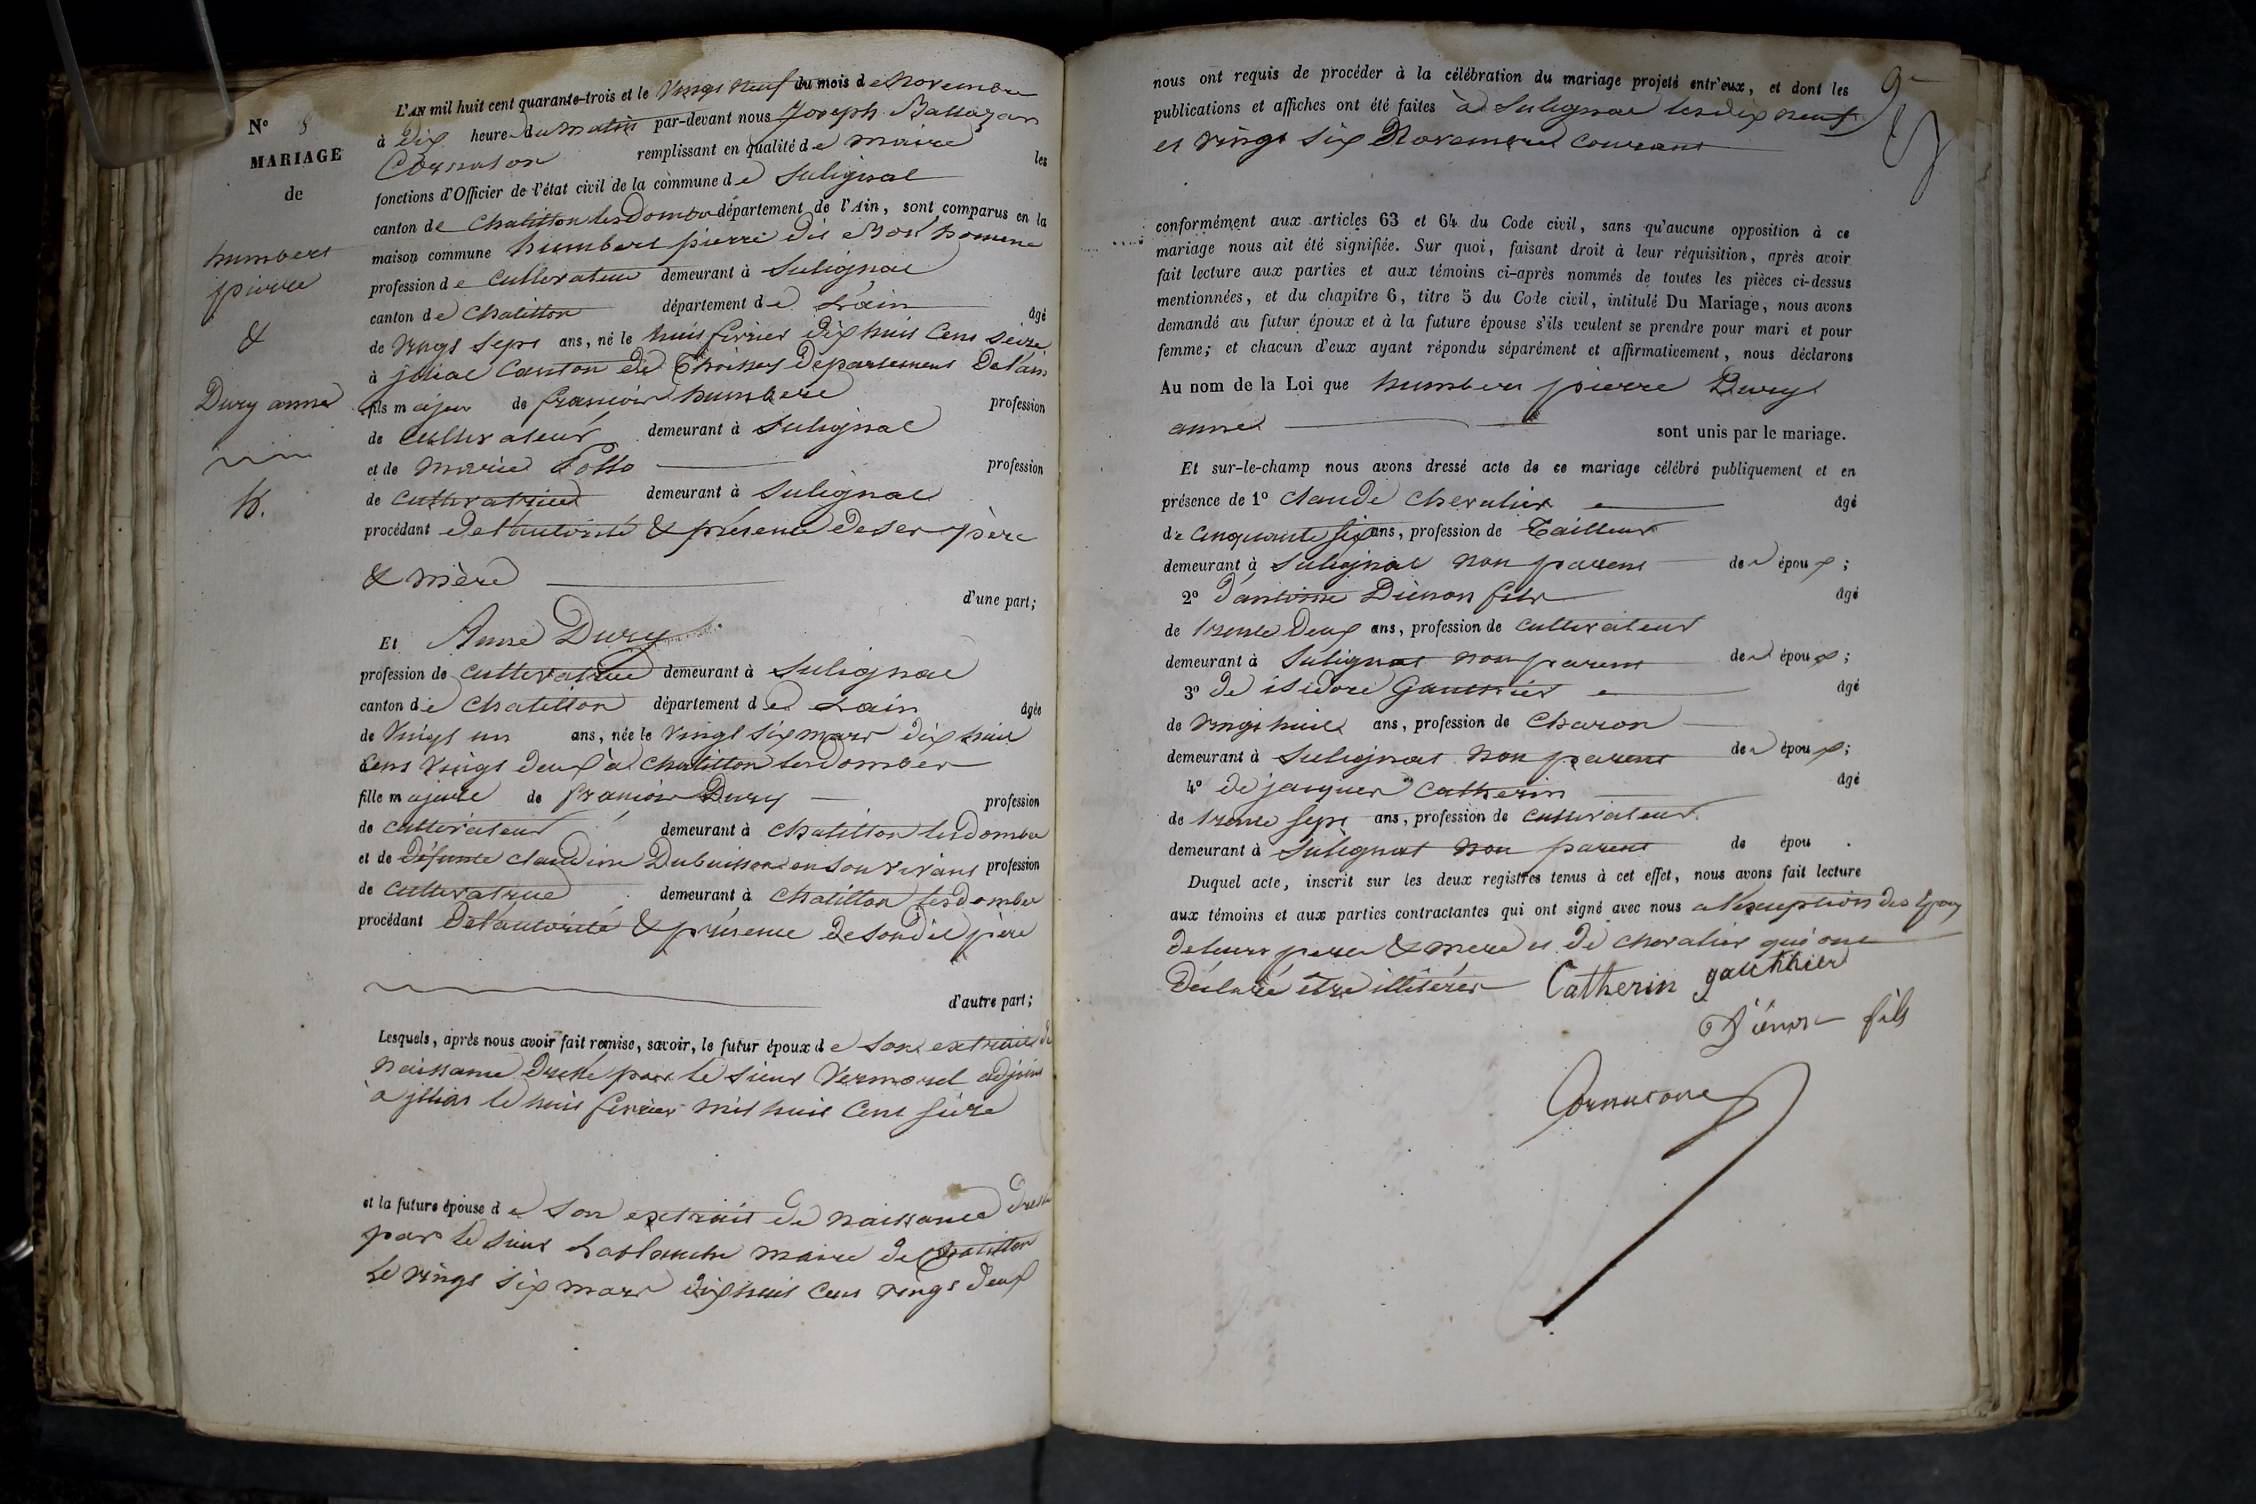 N° 8
MARIAGE
de
humbert
pierre
&
Dury anne
L'AN mil huit cent quarante-trois et le Vingt Neuf du mois de Novembre
à Dix heure du Matin par-devant nous Joseph Baltazar
Cornaton remplissant en qualité de maire les
fonctions d'Officier de l'état civil de la commune de Sulignat
canton de Chatillon les Dombe département de l'Ain, sont comparus en la
maison commune humbert pierre dit
profession de Cultivateur demeurant à Sulignac
canton de Chatillon département de L'ain âgé
de Vingt Sept ans, né le huit fevrier Dix huit Cent Seize
à jiliac Canton de Thoissey Departement De l'ain
fils majeur de francoir humbert profession
de Cultivateur demeurant à Sulignac
et de Marie profession
de Cultivatrice demeurant à Sulignac
procédant de l'autorité & présence de ses père
& mère d'une part;
Et Anne Dury
profession de Cultivatrice demeurant à Sulignac
canton de Chatillon département de L'ain âgée
de Vingt un ans, née le Vingt Six mars dix huit
Cent Vingt deux à Chatillon les Dombes
fille majeure de francoir Dury profession
de Cultivateur demeurant à Chatillon les Dombe
et de Défunte claudine Dubuisson en son vivant profession
de Cultivatrice demeurant à Chatillon les Dombe
procédant De l'autorité & présence de son dit père
d'autre part;
Lesquels, après nous avoir fait remise, savoir, le futur époux de son extrait de
Naissance Dressé par le Sieur Vermorel adjoint
à jillias le huit fevrier mil huit Cent Sieze
et la future épouse de Son extrait de naissance dressé
par le sieur Lablanche maire de Chatillon
le vingt six mars dix huit Cent vingt deux
9
nous ont requis de procéder à la célébration du mariage projeté entr'eux, et dont les
publications et affiches ont été faites à Sulignac les dix neuf
et vingt Six Novembre Courant
conformément aux articles 63 et 64 du Code civil, sans qu'aucune opposition à ce
mariage nous ait été signifiée. Sur quoi, faisant droit à leur réquisition, après avoir
fait lecture aux parties et aux témoins ci-après nommés de toutes les pièces ci-dessus
mentionnées, et du chapitre 6, titre 5 du Code civil, intitulé Du Mariage, nous avons
demandé au futur époux et à la future épouse s'ils veulent se prendre pour mari et pour
femme; et chacun d'eux ayant répondu séparément et affirmativement, nous déclarons
Au nom de la Loi que humbert pierre Dury
anne sont unis par le mariage.
Et sur-le-champ nous avons dressé acte de ce mariage célébré publiquement et en
présence de 1° Claude Chevalier âgé
de Cinquante Six ans, profession de Tailleur
demeurant à Sulignac non parent de époux;
2° d'antoine Dienon fils âgé
de trente Deux ans, profession de Cultivateur
demeurant à Sulignat non parent de époux;
3° de isidore Gauthier âgé
de vingt huit ans, profession de Charon
demeurant à Sulignat non parent de époux;
4° de jacques Catherin âgé
de trente Sept ans, profession de Cultivateur
demeurant à Sulignat non parent de épou .
Duquel acte, inscrit sur les deux registres tenus à cet effet, nous avons fait lecture
aux témoins et aux parties contractantes qui ont signé avec nous a l'exception des Epoux
de leurs peres & meres et de chevalier qui ont
Déclaré être illitérés Catherin gauthier
Diénon fils
Cornaton